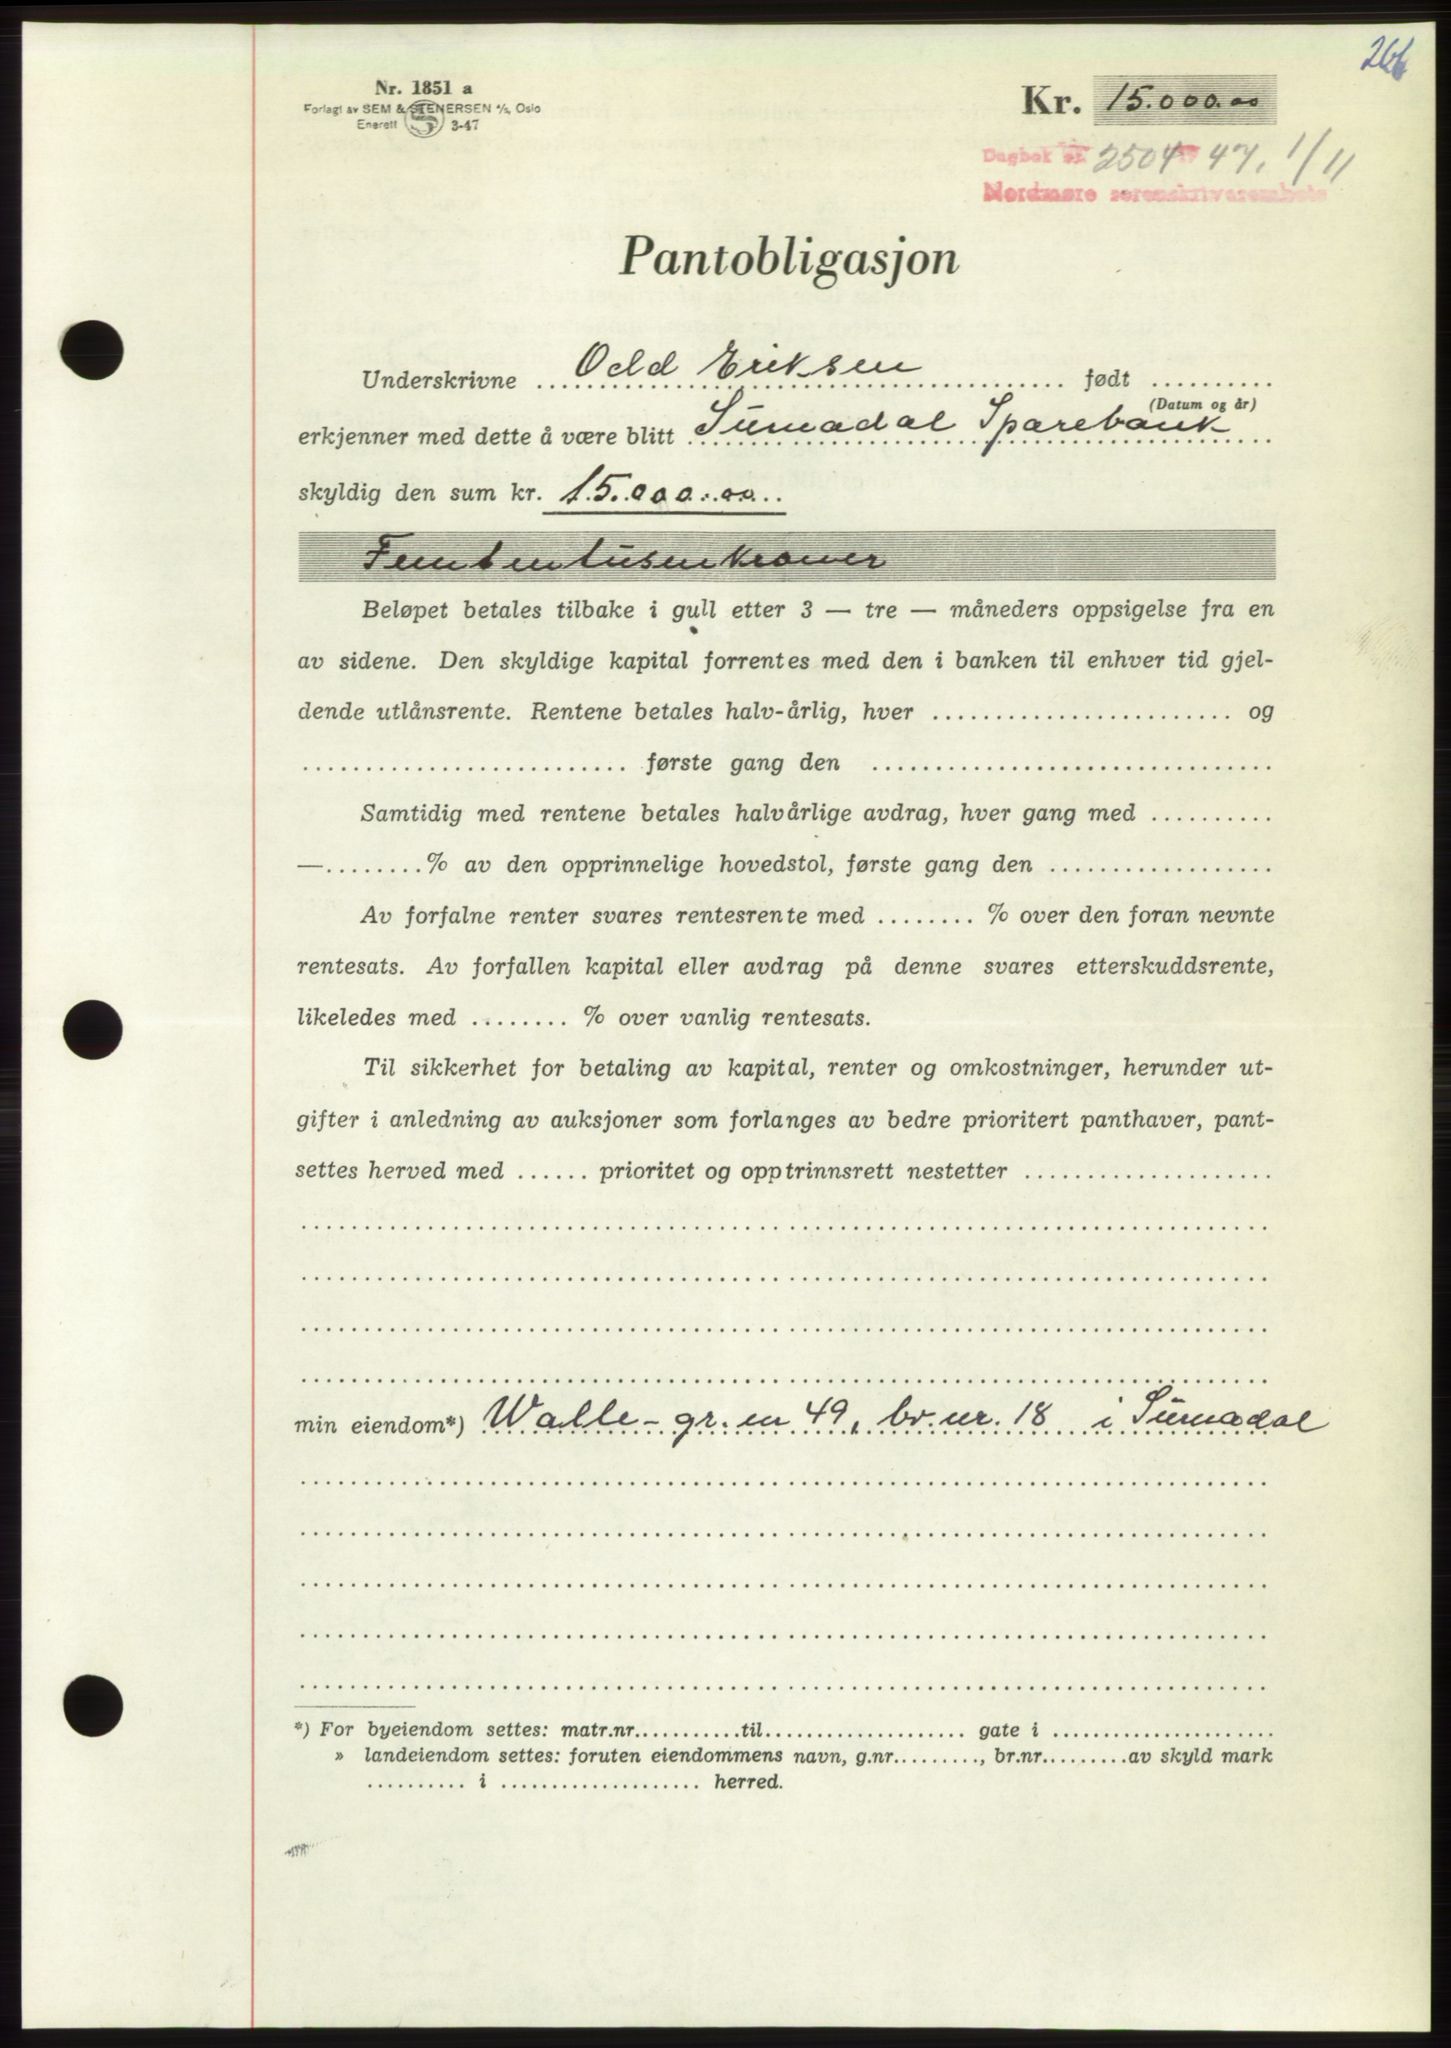 266
Nr. 1851 a
Forlagt av SEM & STENERSEN A/S, Oslo
Enerett S 3-47
Kr. 15.000.00
Dagbok nr. 2504 47. 1/11
Nordmøre sorenskriverembete
Pantobligasjon
Underskrivne Odd Eriksen født ..........
(Datum og år)
erkjenner med dette å være blitt Surnadal Sparebank
skyldig den sum kr. 15.000.00
Femtentusenkroner
Beløpet betales tilbake i gull etter 3 — tre — måneders oppsigelse fra en
av sidene. Den skyldige kapital forrentes med den i banken til enhver tid gjel-
dende utlånsrente. Rentene betales halv-årlig, hver ........................ og
.......................... første gang den ................................
Samtidig med rentene betales halvårlige avdrag, hver gang med ..........
—........% av den opprinnelige hovedstol, første gang den ..................
Av forfalne renter svares rentesrente med ........ % over den foran nevnte
rentesats. Av forfallen kapital eller avdrag på denne svares etterskuddsrente,
likeledes med ........ % over vanlig rentesats.
Til sikkerhet for betaling av kapital, renter og omkostninger, herunder ut-
gifter i anledning av auksjoner som forlanges av bedre prioritert panthaver, pant-
settes herved med ...... prioritet og opptrinnsrett nestetter ....................
min eiendom*) Walle - gr. nr 49, br. nr. 18 i Surnadal
*) For byeiendom settes: matr.nr...........til..................... gate i ......................
» landeiendom settes: foruten eiendommens navn, g.nr........., br.nr.........av skyld mark
.......... i .................... herred.